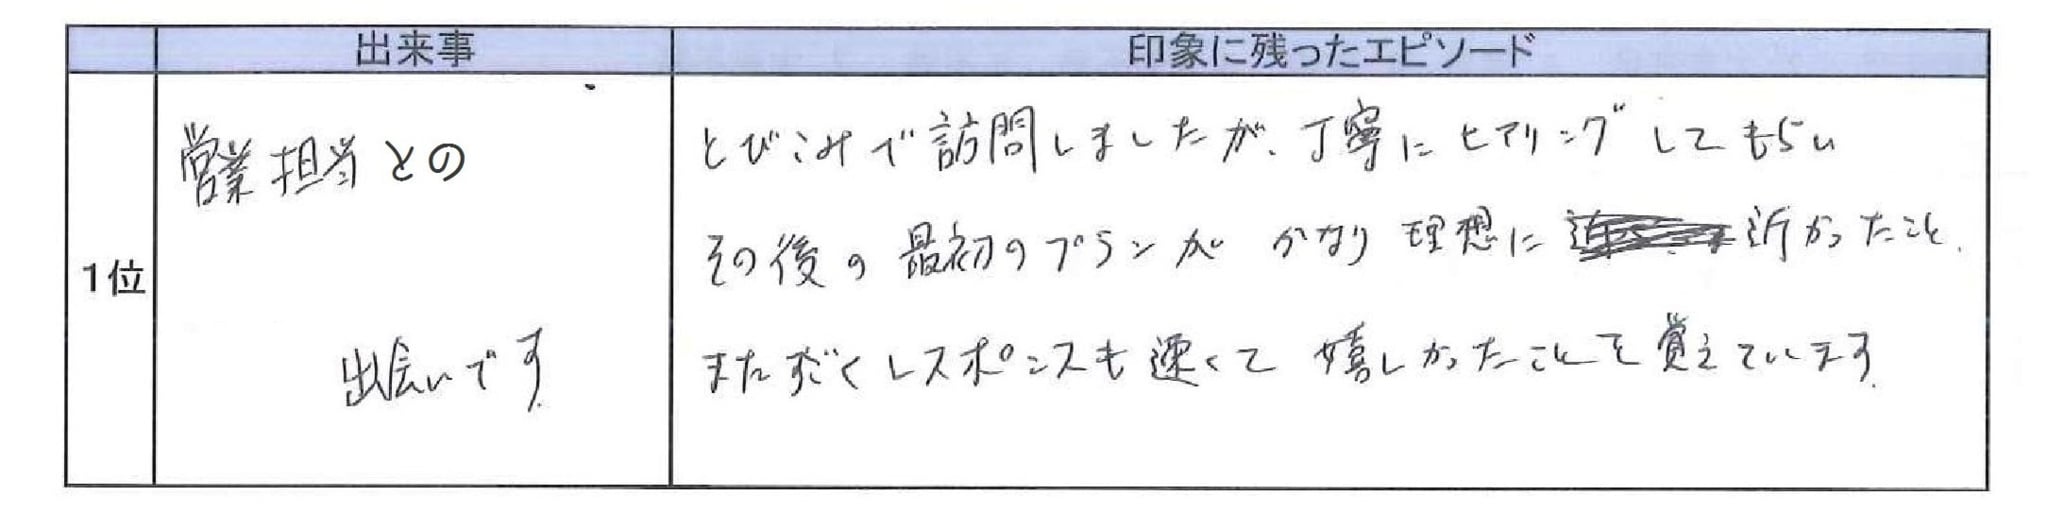 出来事
印象に残ったエピソード
1位
営業担当との
出会いです
とびこみで訪問しましたが、丁寧にヒアリングしてもらい
その後の最初のプランがかなり理想に 近かったこと、
また レスポンスも速くて嬉しかったことを覚えています。